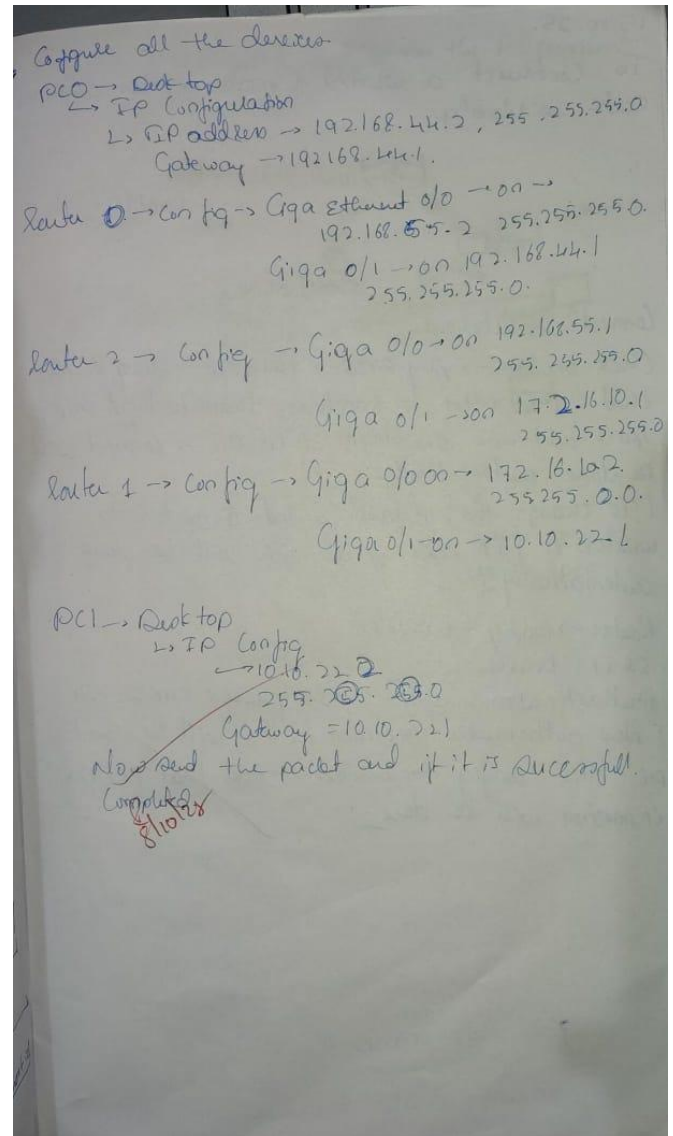 Configure all the devices
PC0 → Desktop
↳ IP Configuration
↳ IP address → 192.168.44.2, 255.255.255.0
Gateway → 192168.44.1.
Router 0 → Config → Giga Ethernet 0/0 → on →
192.168.55.2 255.255.255.0.
Giga 0/1 → on 192.168.44.1
255.255.255.0.
Router 2 → Config → Giga 0/0 → on 192.168.55.1
255.255.255.0
Giga 0/1 → on 17.2.16.10.1
255.255.255.0
Router 1 → Config → Giga 0/0 on → 172.16.10.2
255255.0.0.
Giga 0/1 – on → 10.10.22.1
PC1 → Desktop
↳ IP Config
→ 10.10.22.2
255.255.255.0
Gateway = 10.10.221
Now send the packet and if it is sucessfull.
Completed
8/10/28